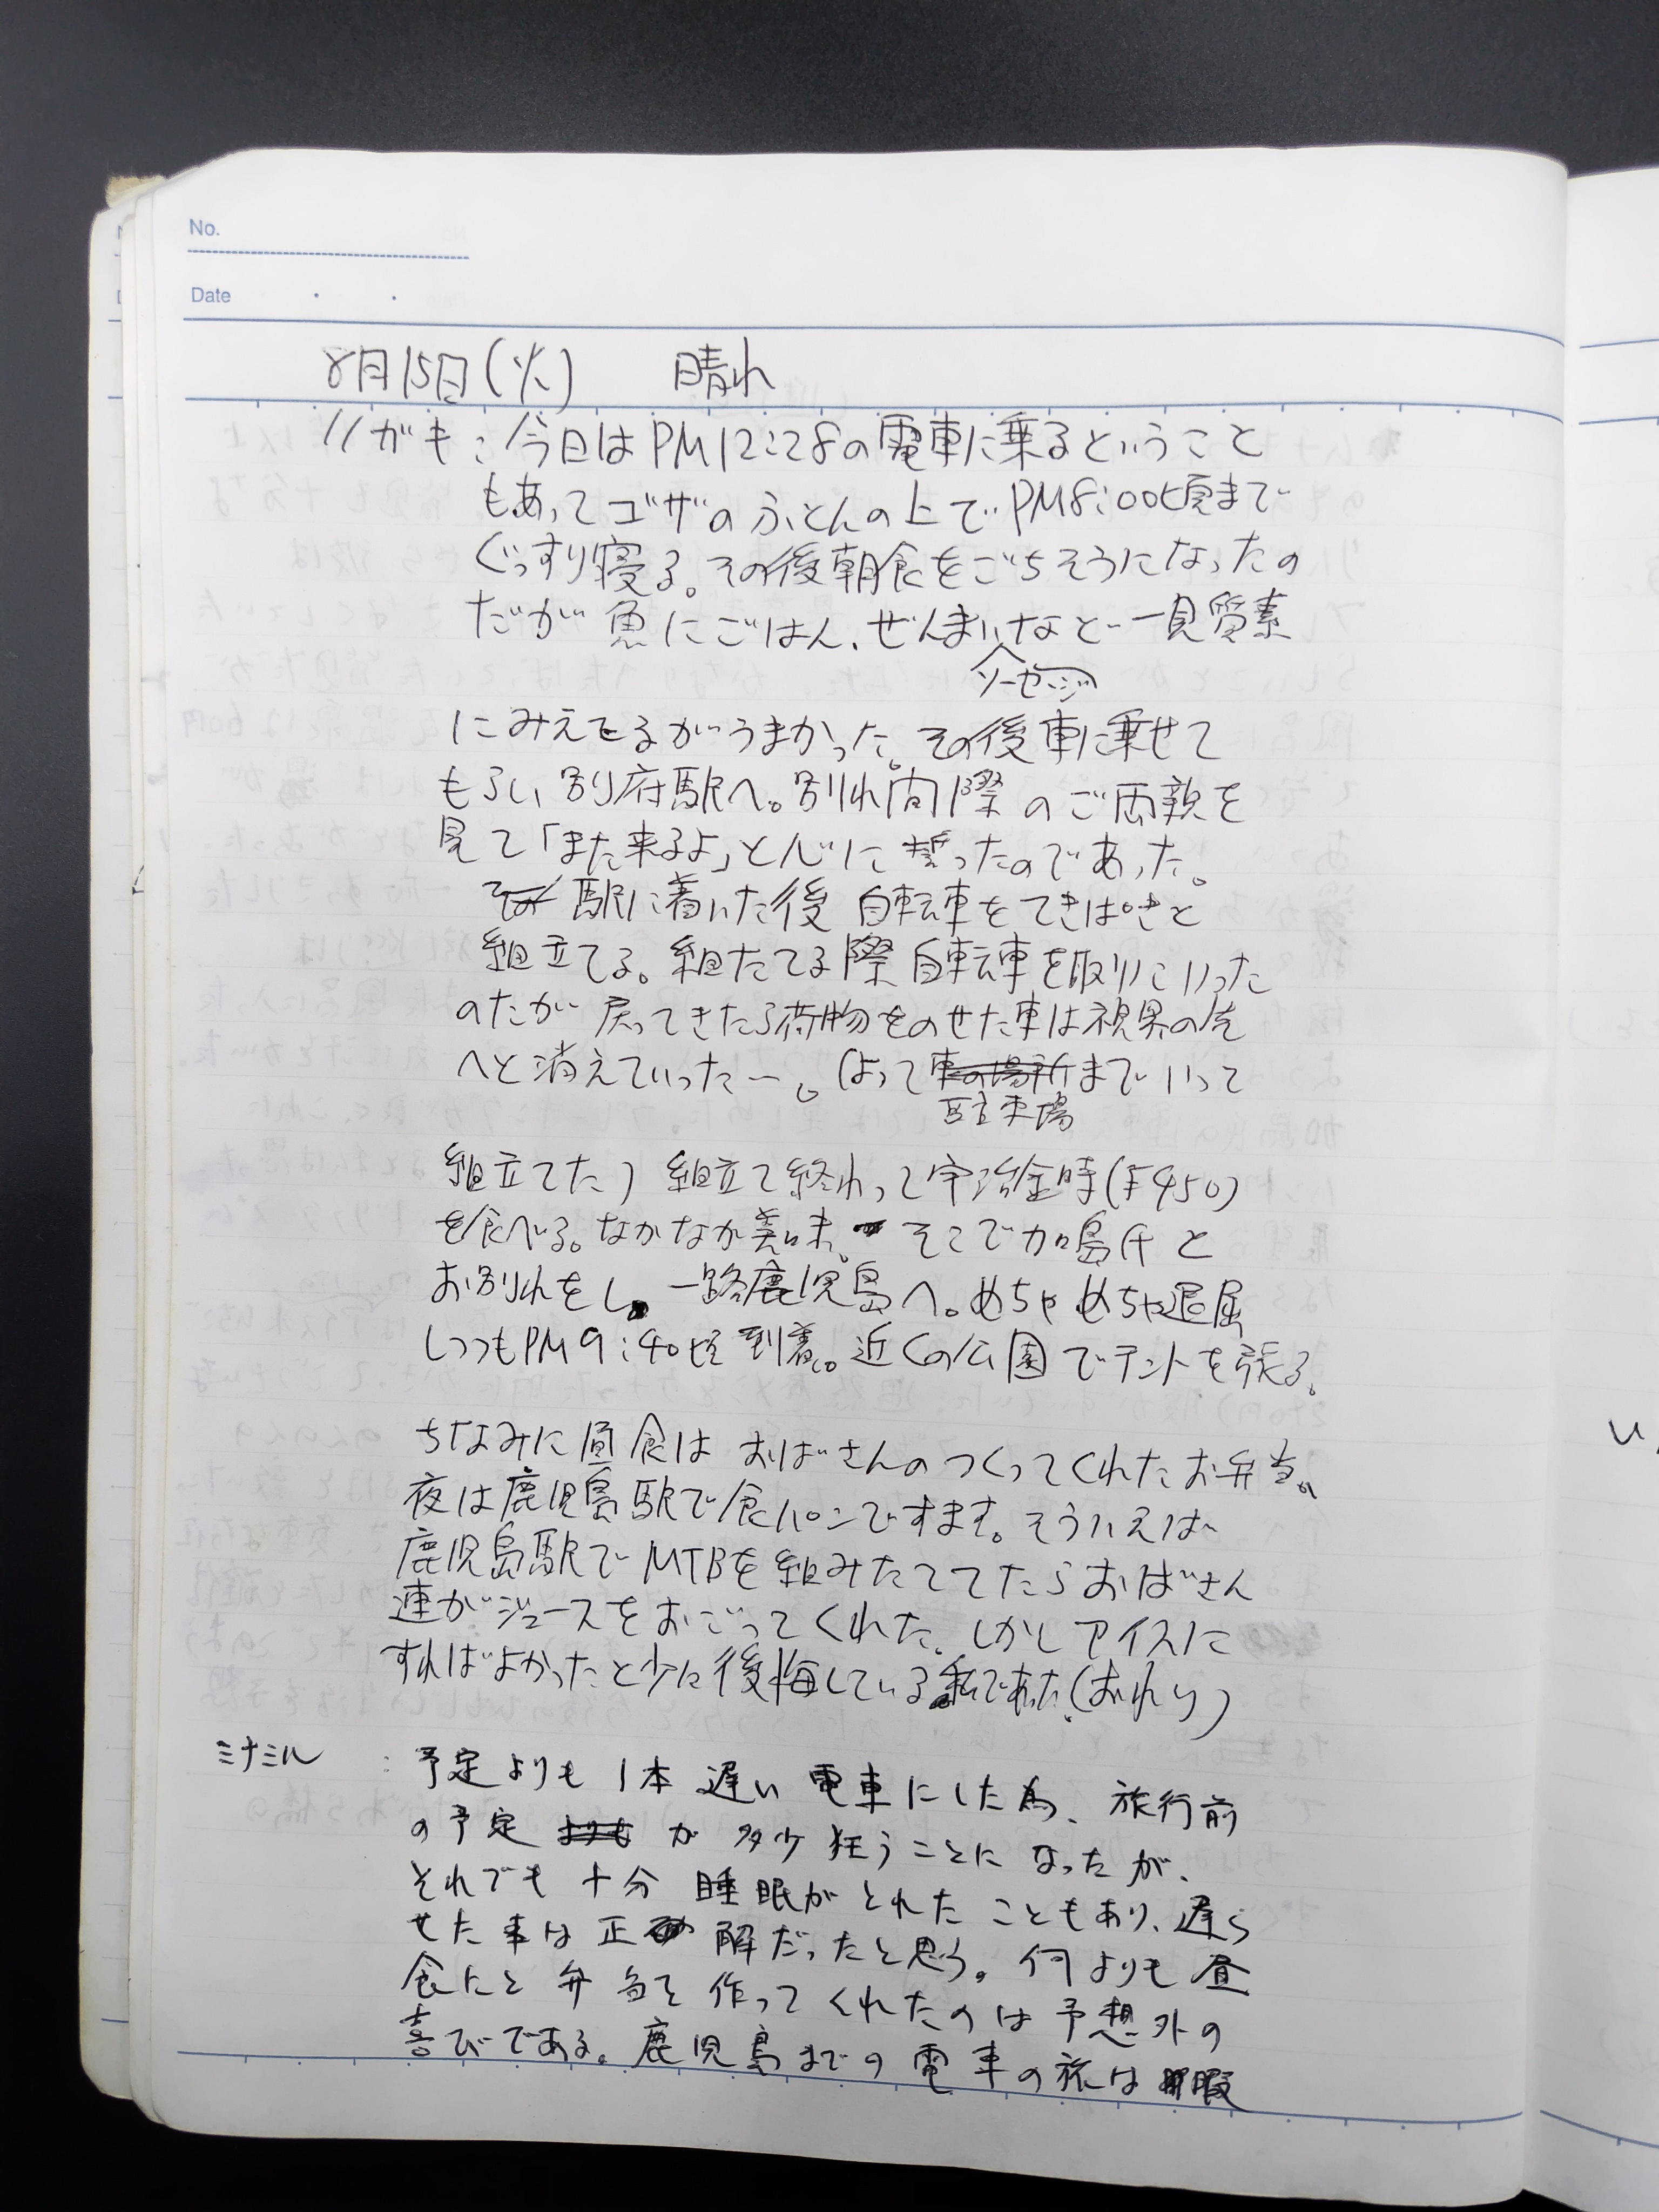 No.
Date
8月15日(火) 晴れ
リがも:今日はPM12:28の電車に乗るということ
もあってゴザのふとんの上でPM8:00頃まで
ぐっすり寝る。その後朝食をごちそうになったの
だが魚にごはん、ぜんまい、など一見質素
ソーセージ
にみえてるがうまかった。その後車に乗せて
もらい別府駅へ。別れ間際のご両親を
見て「また来るよ」と心に誓ったのであった。
駅に着いた後自転車をてきぱきと
組立てる。組たてる際自転車を取りにいった
のだが戻ってきたら荷物をのせた車は視界の先
へと消えていったー。よって車の場所までいって
駐車場
組立てた)組立て終わって宇治金時(¥450)
を食べる。なかなか美味。そこで加嶋氏と
お別れをし。一路鹿児島へ。めちゃめちゃ退屈
しつつもPM9:40頃到着。近くの公園でテントを張る。
ちなみに昼食はおばさんのつくってくれたお弁当。
夜は鹿児島駅で食パンですます。そういえば
鹿児島駅でMTBを組みたててたらおばさん
連がジュースをおごってくれた。しかしアイスに
すればよかったと少々後悔している私であった(おわり)
ミナミル :予定よりも1本遅い電車にした為、旅行前
の予定よりもが多少狂うことになったが、
それでも十分睡眠がとれたこともあり、遅ら
せた事は正解だったと思う。何よりも昼
食にと弁当を作ってくれたのは予想外の
喜びである。鹿児島までの電車の旅は暇